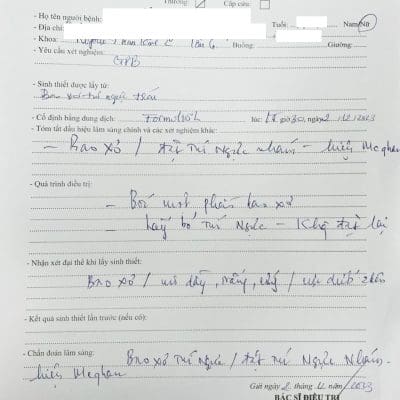 Thường: Cấp cứu:
- Họ tên người bệnh:
- Địa chỉ: Tuổi: Nam/Nữ
- Khoa: Buồng: Giường:
- Yêu cầu xét nghiệm:
GPB
- Sinh thiết được lấy từ:
Bao xơ túi ngực
- Cố định bằng dung dịch: Formol lúc: giờ 30, ngày 2/12/2023
- Tóm tắt dấu hiệu lâm sàng chính và các xét nghiệm khác:
- Bao xơ / đặt túi ngực nhãn hiệu Meghan
- Quá trình điều trị:
- Bóc một phần bao xơ
túi ngực - đặt lại
- Nhận xét đại thể khi lấy sinh thiết:
Bao xơ / dầy, trắng,
- Kết quả sinh thiết lần trước (nếu có):
- Chẩn đoán lâm sàng: Bao xơ túi ngực / đặt túi ngực nhãn
hiệu Meghan
Gửi ngày 2 tháng 12 năm 2023
BÁC SĨ ĐIỀU TRỊ